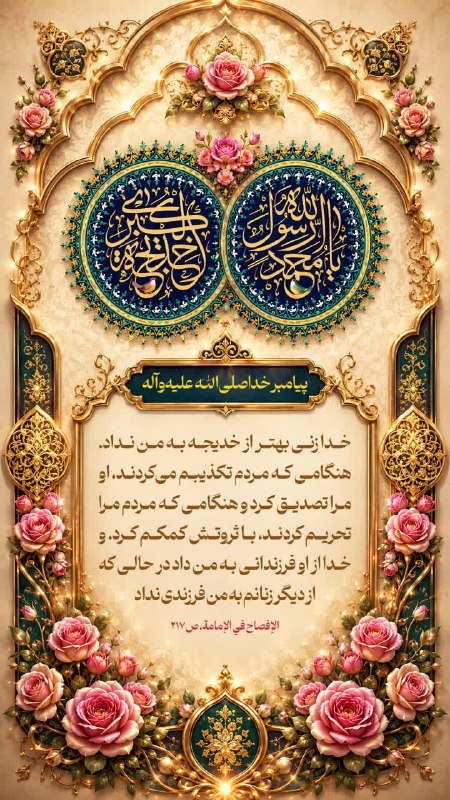 یا محمد یا رسول الله
خدیجة الکبری
پیامبر خداصلی‌الله علیه‌وآله
خدا زنی بهتر از خدیجه به من نداد.
هنگامی که مردم تکذیبم می‌کردند، او
مرا تصدیق کرد و هنگامی که مردم مرا
تحریم کردند، با ثروتش کمکم کرد. و
خدا از او فرزندانی به من داد در حالی که
از دیگر زنانم به من فرزندی نداد
الإفصاح في الإمامة، ص۲۱۷